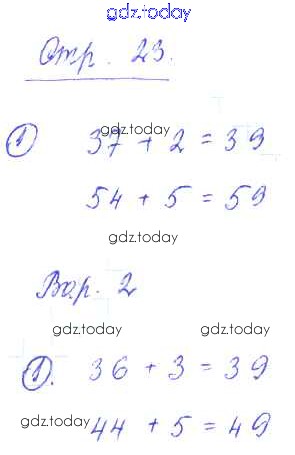 gdz.today
Стр. 23.
gdz.today
① 37 + 2 = 39
54 + 5 = 59
gdz.today
Вар. 2
gdz.today gdz.today
①. 36 + 3 = 39
gdz.today
44 + 5 = 49